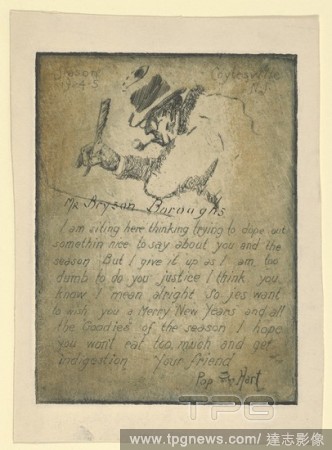 Season
1924-5
Coytesville
N.J.
Mr Bryson Boroughs
I am siting here thinking trying to dope out
somethin nice to say about you and the
season But I give it up as I am too
dumb to do you justice I think you
know I mean alright So jes want
to wish you a Merry New Years and all
the Goodies of the season I hope
you won't eat too much and get
indigestion Your friend
Pop Hart
TPG
www.tpgnews.com/達志影像